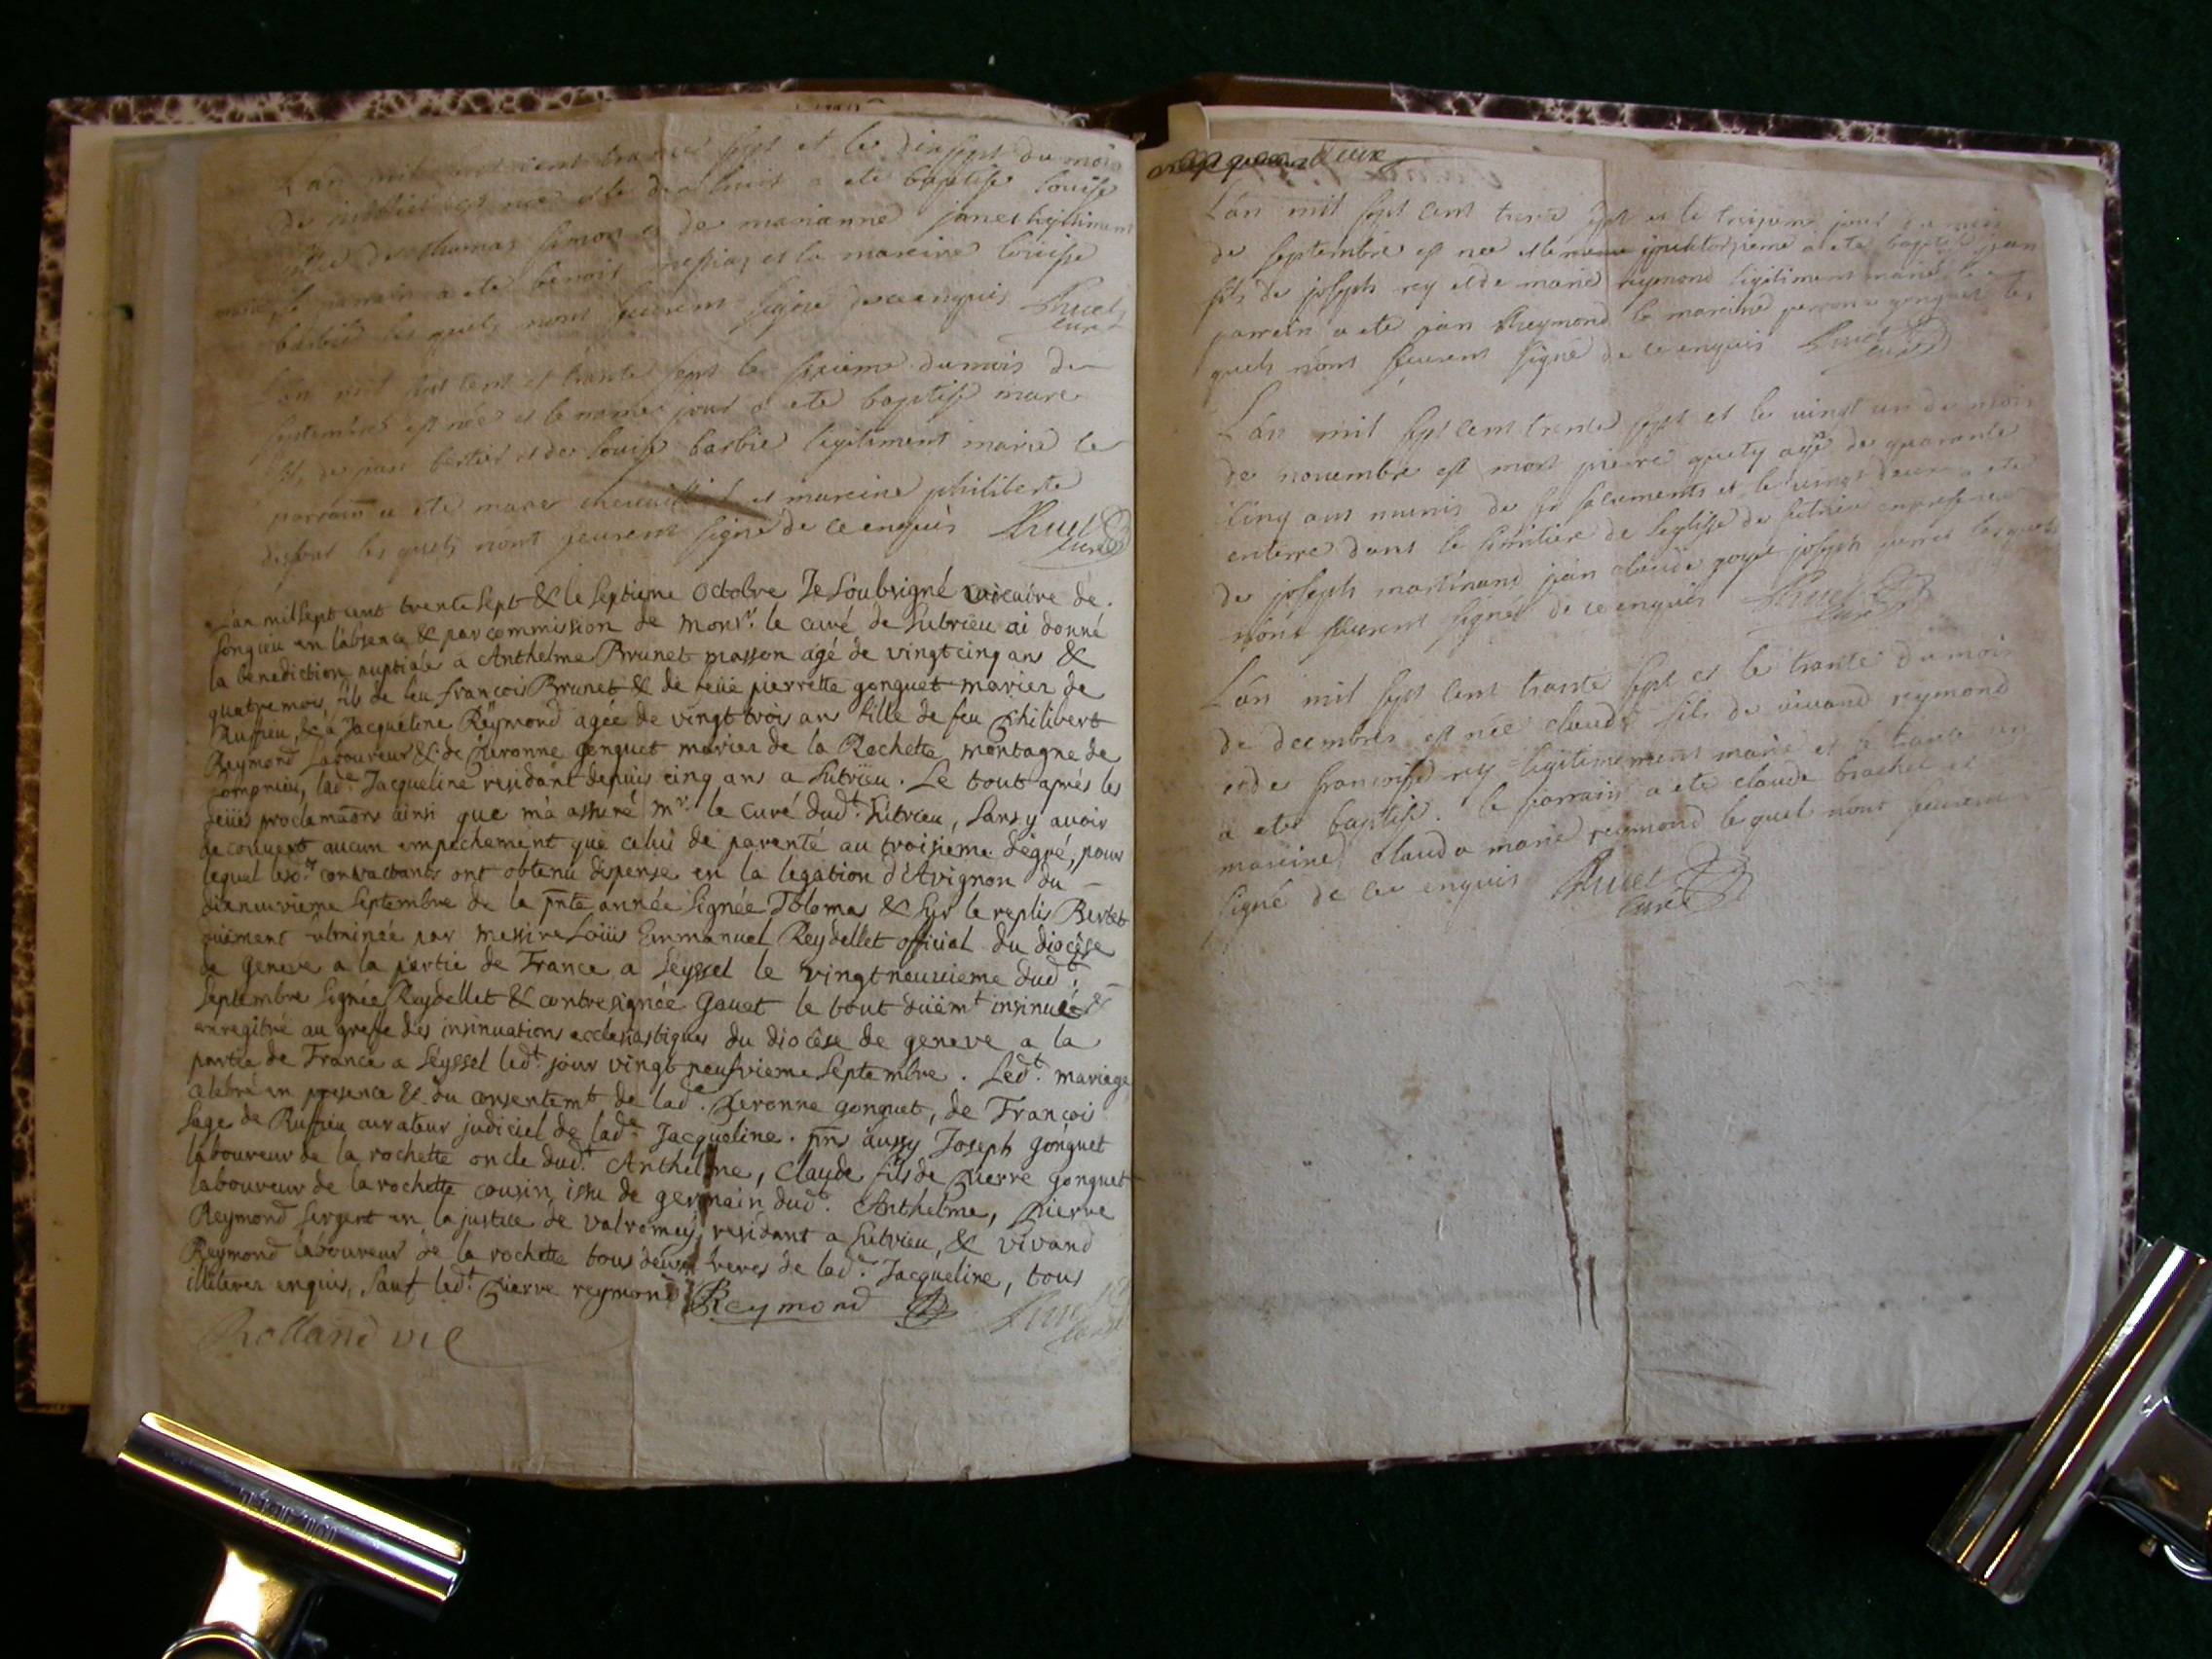 L'an mil sept cent trante sept et le dix sept du mois
de juillet est née et le dix huit a ete baptisé louise
fille de thumas simon et de marianne janet legitiment
mariés le parrain a ete benoit et la mareine louise
barbié les quels nont sceurent signé de ce enquis Huet
curé
L'an mil sept cent et trante sept le sixieme du mois de
septembre est née et le meme jour a ete baptisé marc
fils de jean bertier et de louise barbié legitiment marié le
parrain a ete marc et mareine philiberte
les quels nont sceurent signé de ce enquis Huet
curé
L'an mil sept cent trente sept & le septieme octobre Je soubsigné vicaire de
songieu en l'absence & par commission de Monsr. le curé de Sutrieu ai donné
la benediction nuptiale a Anthelme Brunet masson agé de vingt cinq ans &
quatre mois, fils de feu francois Brunet & de feüe pierrette gonguet mariez de
Ruffieu, & a Jacqueline Reymond agée de vingt trois ans fille de feu Philibert
Reymond laboureur & de Peronne gonguet mariez de la Rochette montagne de
lompnieu, lade. Jacqueline residant depuis cinq ans a Sutrieu. Le tout aprés les
deües proclamaõns ainsi que m'a assuré Mr. le curé dudt. Sutrieu, sans y avoir
decouvert aucun empechement que celui de parenté au troisieme degré, pour
lequel les contractants ont obtenu dispense en la legation d'Avignon du
dixneuvieme Septembre de la pñte année signée Tolomas & sur le replis Bertet
duëment fulminée par messire Loüis Emmanuel Reydellet official du diocèse
de geneve a la partie de France a Seyssel le vingtneuvieme dudt.
Septembre signée Reydellet & contresignée Gavet le tout duëmt insinué &
enregitré au greffe des insinuations ecclesiastiques du diocèse de geneve a la
partie de France a Seyssel ledt. jour vingt neufvieme Septembre. Ledt. mariage
celebré en presence & du consentemt de lade. Peronne gonguet, de François
Sage de Ruffieu curateur judiciel de lade. Jacqueline. pñs aussy Joseph gonguet
laboureur de la rochette oncle dudt. Anthelme, Claude fils de Pierre gonguet
laboureur de la rochette cousin issu de germain dudt. Anthelme, Pierre
Reymond sergent en la justice de valromey residant a Sutrieu, & vivand
Reymond laboureur de la rochette tous deux freres de lade. Jacqueline, tous
illiterez enquis, sauf ledt. Pierre reymond Reymond Huet
curé
Rolland vic
deux
L'an mil sept cent trente sept et le treisieme jour du mois
de septembre est nee et le quatorsieme a ete baptisé jean
fils de joseph rey et de marie reymond legitiment mariés le
parrein a ete jan Reymond la mareine peronne gonguet les
quels nont sceurent signé de ce enquis Huet
curé
L'an mil sept cent trente sept et le vingt un du mois
de novembre est mort pierre agé de quarante
cinq ans munis de ss sacuments et le vingt deux a ete
enterré dans le simitiere de leglise de sutrieu en presence
de joseph martinand jean claude goyet joseph les quels
nont sceurent signé de ce enquis Huet
curé
L'an mil sept cent trante sept et le trante du mois
de decembre est née claude fils de vivand reymond
et de françoise rey legitimement marié et le trante un
a ete baptisé. le parrain a ete claude brachet et
mareine clauda marie reymond lequel nont sceurent
signé de ce enquis Huet
curé